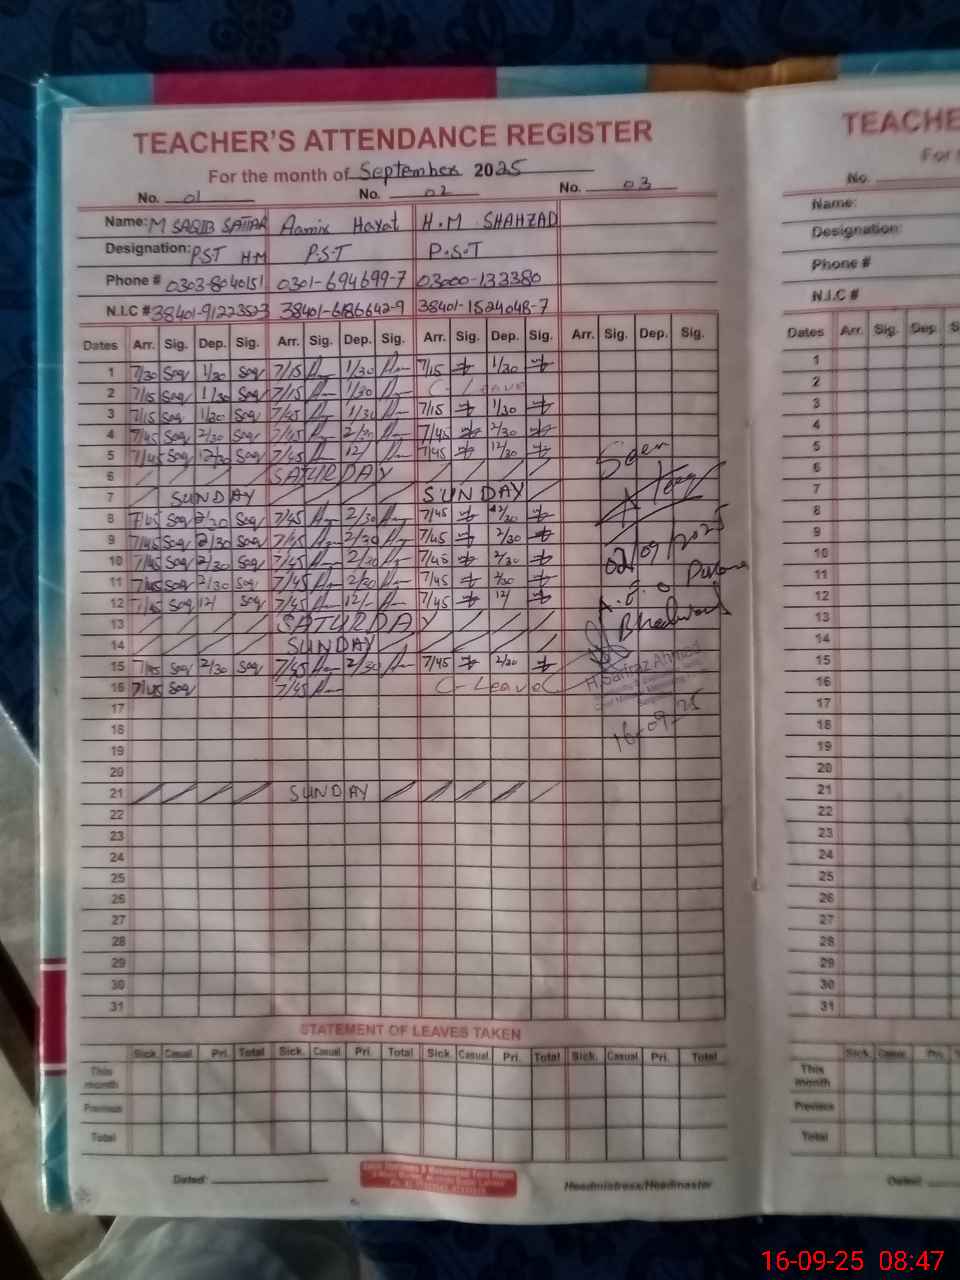 TEACHER'S ATTENDANCE REGISTER
For the month of September 2025
No. 01 No. 02 No. 03
Name: M SAQIB SATTAR Aamir Hayat H.M SHAHZAD
Designation: PST HM P.S.T P.S.T
Phone # 0303-8040151 0301-694699-7 03000-133380
N.I.C # 38401-91223523 38401-6186642-9 38401-1524048-7
Dates Arr. Sig. Dep. Sig. Arr. Sig. Dep. Sig. Arr. Sig. Dep. Sig. Arr. Sig. Dep. Sig.
1 7/30 Saq 1/30 Saq 7/15 1/30 7/15 1/30
2 7/15 Saq 1/30 Saq 7/15 1/30 C-Leave
3 7/15 Saq 1/30 Saq 7/45 1/30 7/15 1/30
4 7/45 Saq 2/30 Saq 7/45 2/30 7/45 2/30
5 7/45 Saq 12/30 Saq 7/45 12/ 7/45 12/30
6 SATURDAY
7 SUNDAY SUNDAY
8 7/45 Saq 2/30 Saq 7/45 2/30 7/45 2/30
9 7/45 Saq 2/30 Saq 7/45 2/30 7/45 2/30
10 7/45 Saq 2/30 Saq 7/45 2/30 7/45 2/30
11 7/45 Saq 2/30 Saq 7/45 2/30 7/45 2/30
12 7/45 Saq 12/ Saq 7/45 12/- 7/45 12/
13 SATURDAY
14 SUNDAY
15 7/45 Saq 2/30 Saq 7/45 2/30 7/45 2/30
16 7/45 Saq 7/45 C-Leave
17
18
19
20
21 SUNDAY
22
23
24
25
26
27
28
29
30
31
Seen
02/09/2025
A.E.O
H.Sarfraz Ahmed
16-09-25
STATEMENT OF LEAVES TAKEN
Sick. Casual Pri. Total Sick. Casual Pri. Total Sick. Casual Pri. Total Sick. Casual Pri. Total
This month
Previous
Total
Dated: Headmistress/Headmaster
TEACHE
For
No.
Name:
Designation:
Phone #
N.I.C #
Dates Arr. Sig. Dep. S
1
2
3
4
5
6
7
8
9
10
11
12
13
14
15
16
17
18
19
20
21
22
23
24
25
26
27
28
29
30
31
Sick. Casual Pri.
This month
Previous
Total
Dated:
16-09-25 08:47